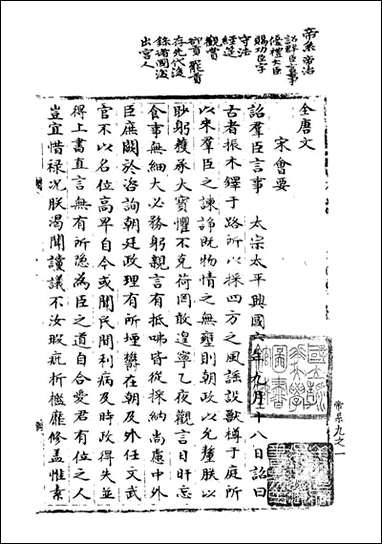 帝系 帝治
詔群臣言事
優禮大臣
賜功臣字
守法
經筵
觀賞
却貢 罷貢
存先代後
錄諸國後
出宮人
全唐文
宋會要
詔羣臣言事 太宗太平興國六年九月十八日詔曰
古者振木鐸于路所以採四方之風謠設獸樽于庭所
以來羣臣之諫諍既物情之無壅則朝政以允釐朕以
眇躬獲承大寶懼不克荷罔敢遑寧乙夜觀言日旰忘
食事無細大必務躬親言有抵啎皆從採納尚慮中外
臣庶闕於咨詢朝廷政理有所壅鬱在朝及外任文武
官不以名位高卑自今或聞民間利病及時政得失並
得上書直言無有所隱為臣之道自合愛君有位之人
豈宜惜禄况朕渴聞讜議不汝瑕疵折檻靡修蓋惟素
帝系九之一